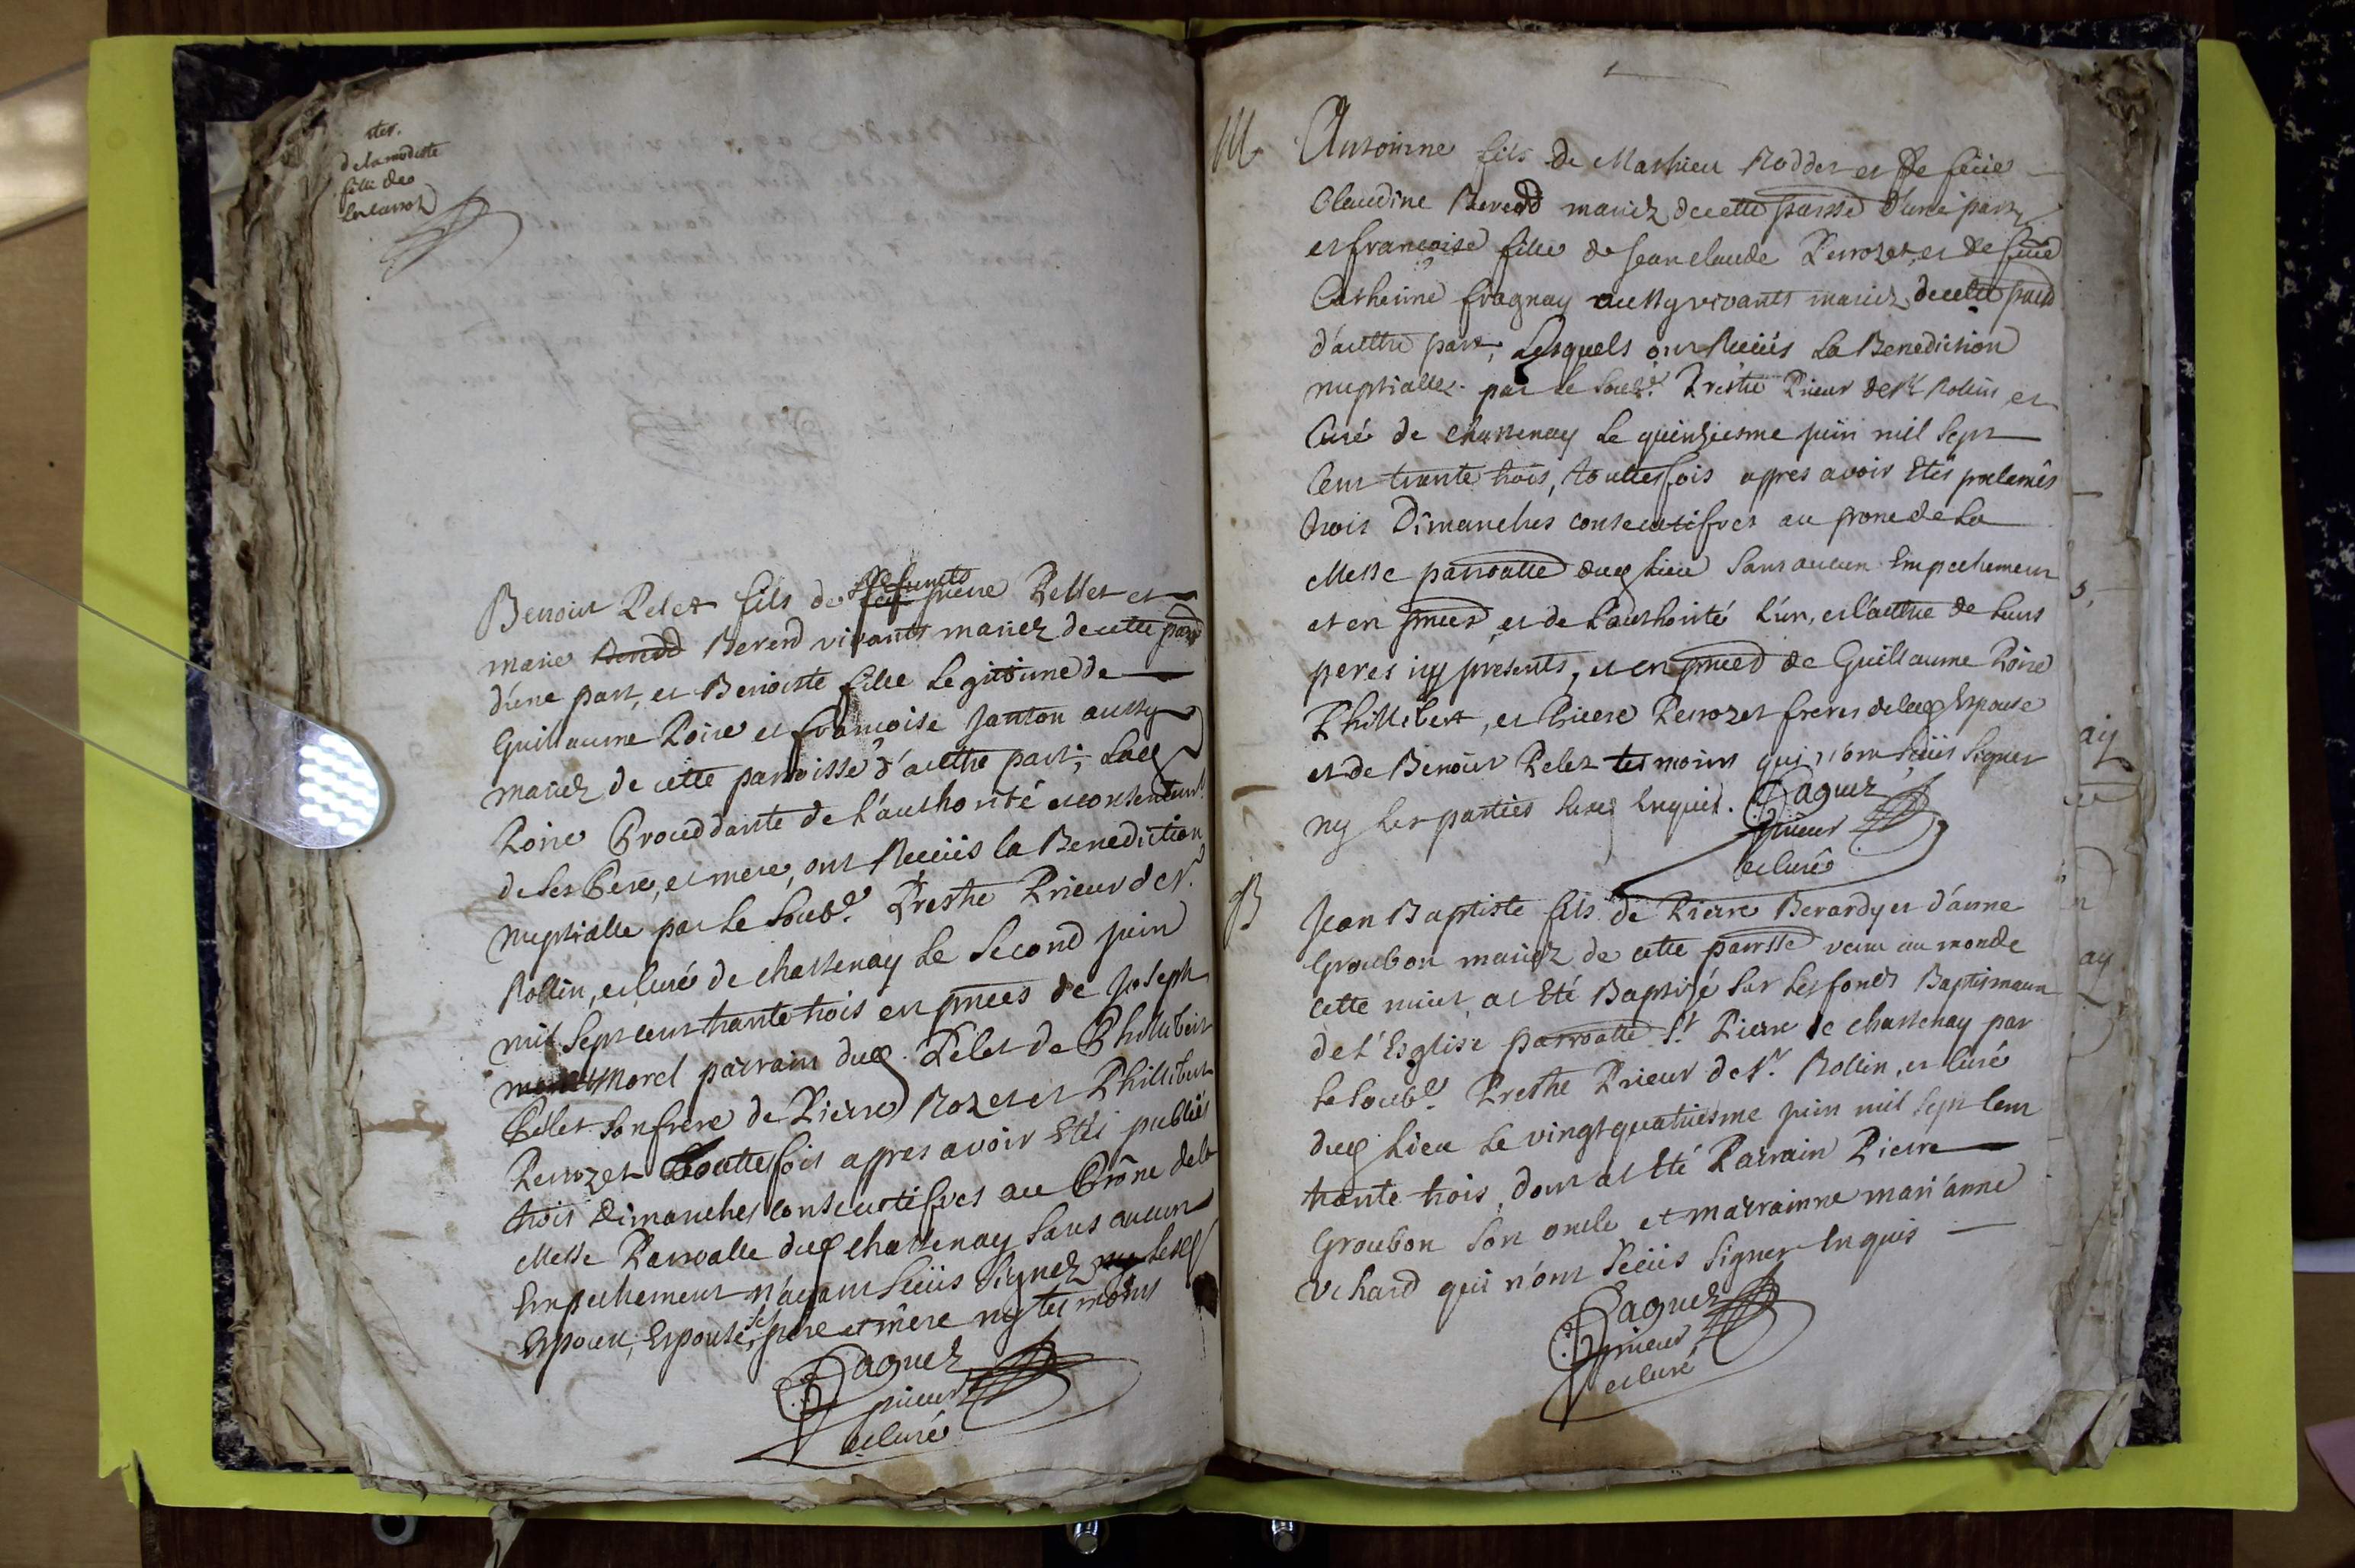 de la modeste
fille de
Benoist Pelet fils de defuncts Pierre Pellet et
marie Bererd vivants mariez de cette parr
d'une part, et Benoiste fille Legitime de
Guillaume Poire et francoise Janton aussy
mariez de cette parroisse d'autre part; Lad
Poire Proceddante de l'authorité et consentemt
de ses Pere, et mere, ont Receüs la Benediction
nuptialle par le soubd. Prestre Prieur de St.
Rollin, et curé de chastenay le second juin
mil sept cent trante trois en pnces de Joseph
Morel parrain dud. Pelet de Phillibert
Pelet son frere de Pierre Rozet et Phillibert
Perrozet touttesfois apres avoir Etés publiés
trois Dimanches consecutifves au Prône de la
Messe Parroalle dud chastenay sans aucun
Empechement n'ayant sceüs signez ny lesd
Espoux, Espouse, ses pere et mere ny tesmoins
Paguez
prieur
et curé
M Antoinne fils de Mathieu Noddet et de feüe
Claudine Bererd mariez de cette parsse d'une part
et francoise fille de Jean claude Perrozet, et de feüe
Catherine fragnay aussy vivants mariez de cette parr
d'autre part, Lesquels ont Receüs La Benediction
nuptialle par le soubd. Prestre Prieur de St Rollin et
Curé de chastenay Le quinziesme juin mil sept
Cent trante trois, touttesfois appres avoir Etés proclamês
trois Dimanches consecutifves au prone de La
Messe parroalle dud Lieu sans aucun Empechement
et en pnces et de L'authorité L'un, et l'autre de Leurs
peres icy presents, et en pnces de Guillaume Poire
Phillibert, et Pierre Perrozet freres de lad Espouse
et de Benoist Pelet tesmoins qui n'ont sceüs signer
ny Les parties Enquis. Paguez
prieur
et curé
B Jean Baptiste fils de Pierre Berardy et d'anne
Groubon mariez de cette parrsse venu au monde
cette nuict, at Eté Baptisé sur Les fonds Baptismaux
de l'Esglise parroalle St Pierre de chastenay par
Le soubd. Prestre Prieur de St. Rollin, et curé
dud Lieu Le vingt quatriesme juin mil sept cent
trante trois, dont at Eté Parrain Pierre
Groubon son oncle et marrainne mari'anne
Vihard qui n'ont sceüs signer Enquis
Paguez
prieur
et curé